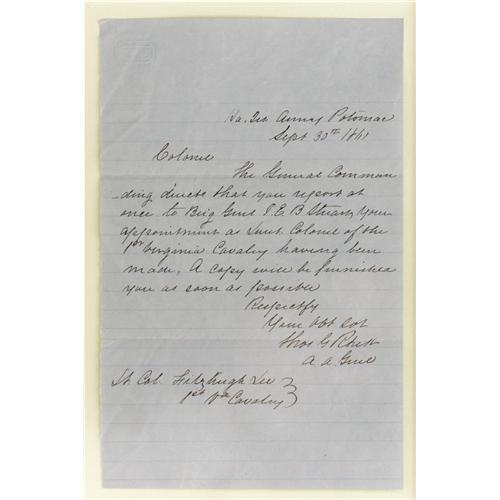 Hd. Qrs Army Potomac
Sept 30th 1861
Colonel
The General Comman
-ding directs that you report at
once to Brig Genl J. E. B Stuart, Your
appointment as Lieut Colonel of the
1st Virginia Cavalry having been
made, A copy will be furnished
you as soon as possible
Respectfy
Your obt svt
Thos G Rhett
A. A. Genl
Lt. Col. Fitzhugh Lee
1st Va Cavalry